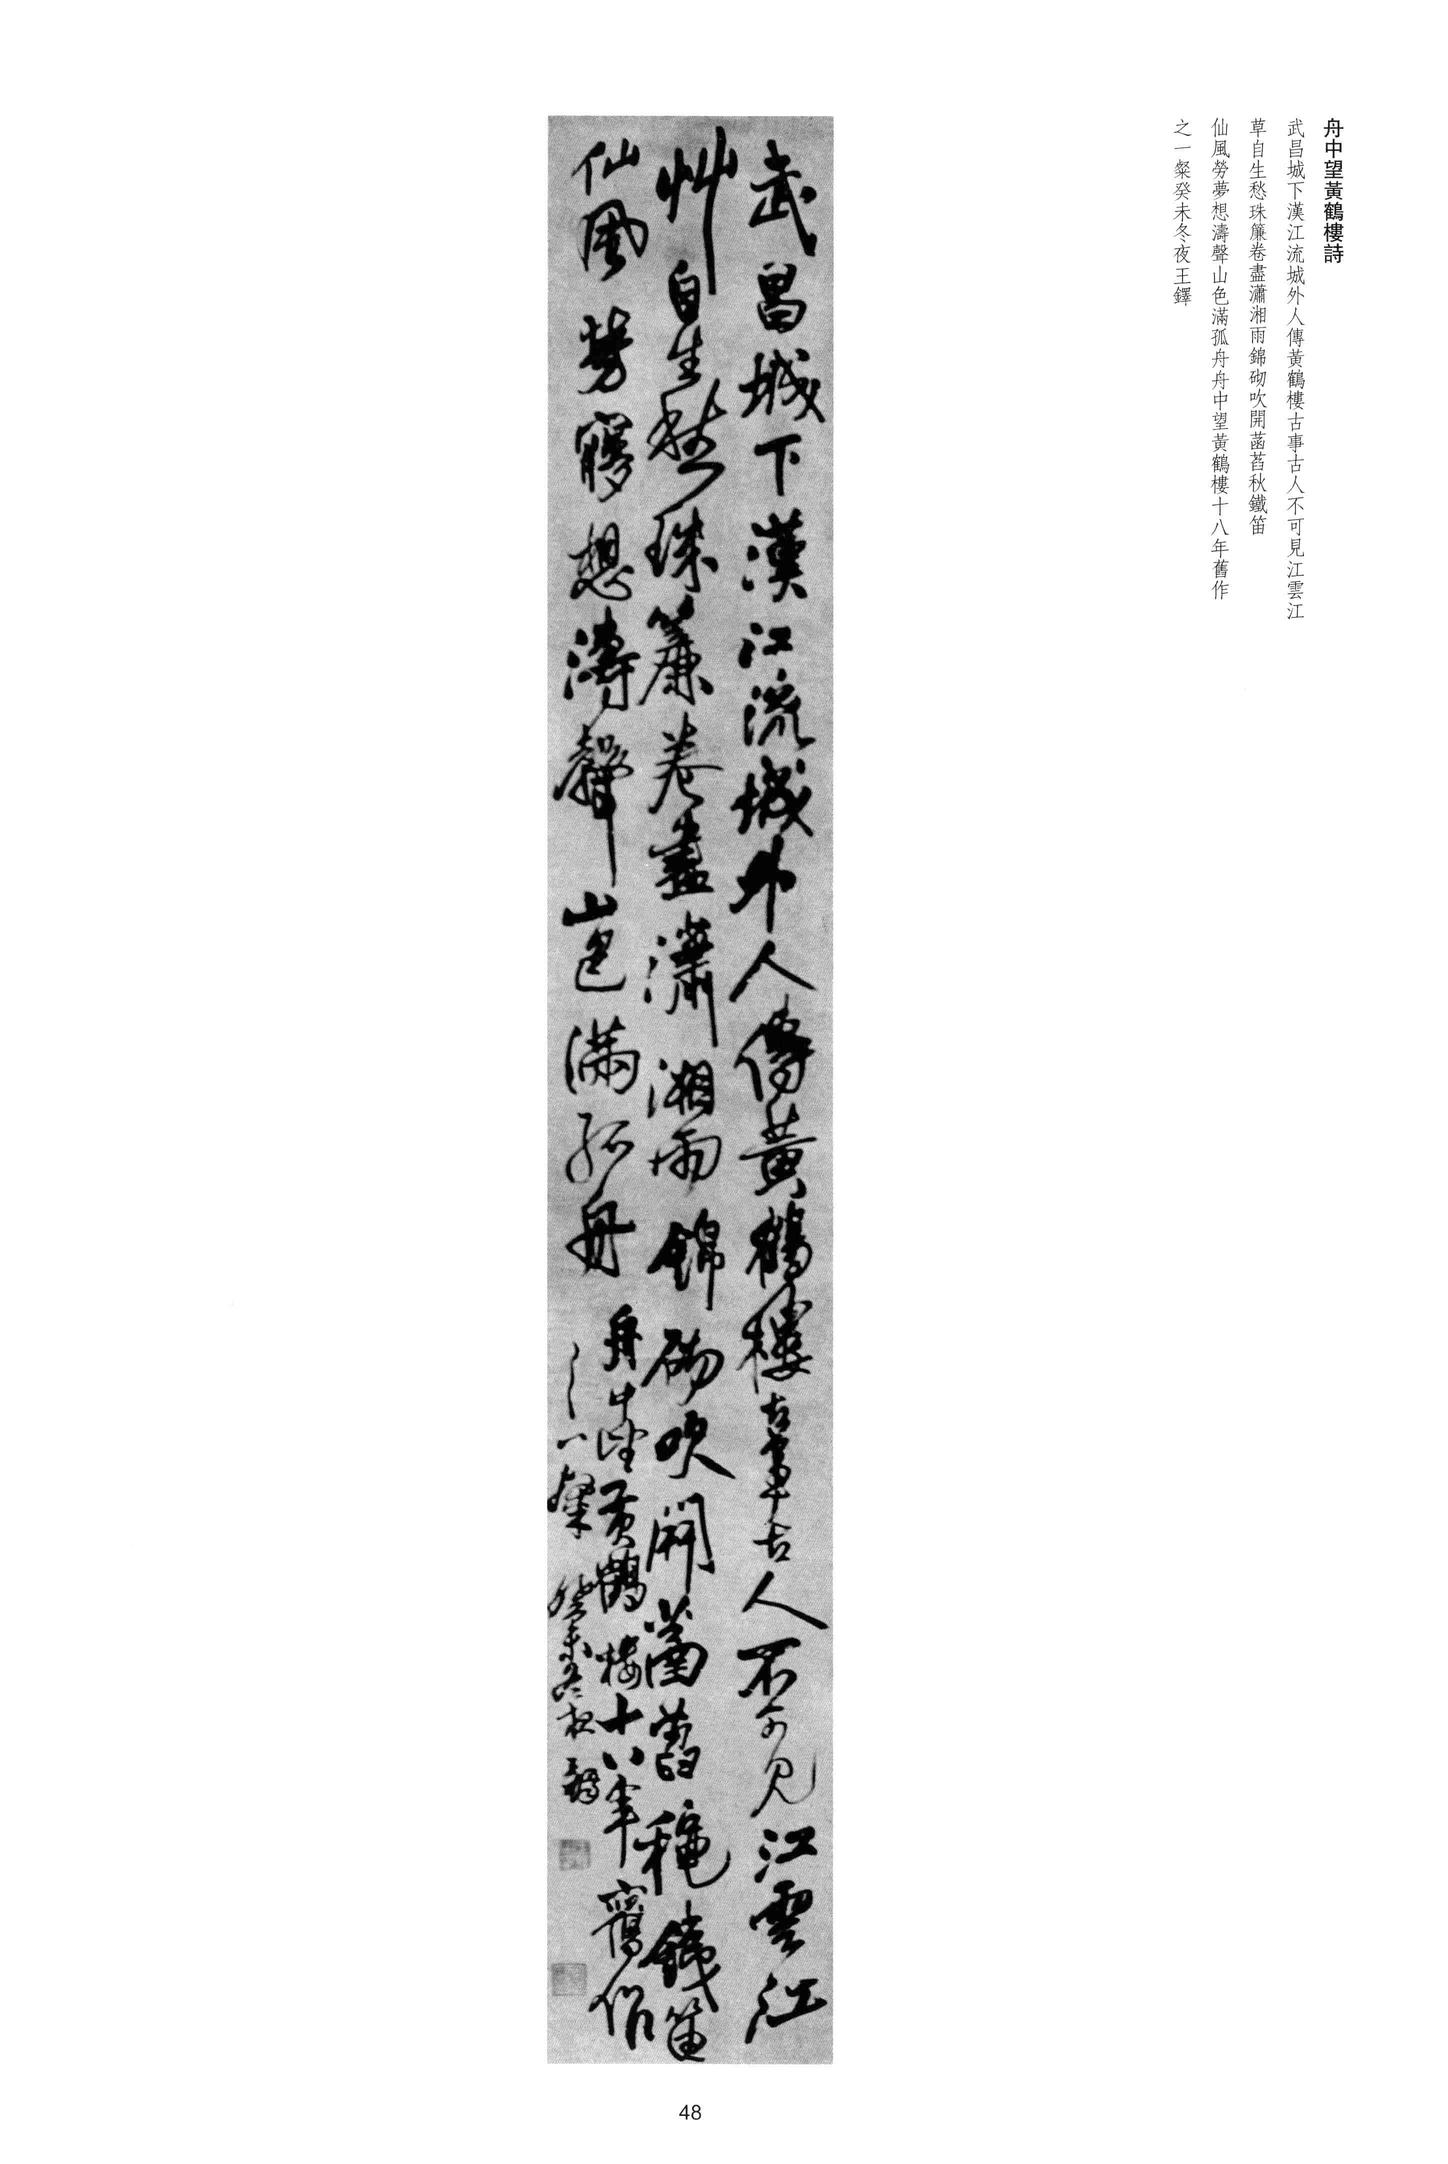 舟中望黃鶴樓詩
武昌城下漢江流城外人傳黃鶴樓古事古人不可見江雲江
草自生愁珠簾卷盡瀟湘雨錦砌吹開菡萏秋鐵笛
仙風勞夢想濤聲山色滿孤舟舟中望黃鶴樓十八年舊作
之一粲癸未冬夜王鐸
武昌城下漢江流城外人傳黃鶴樓古事古人不可見江雲江
艸自生愁珠簾卷盡瀟湘雨錦砌吹開菡萏秋鐵笛
仙風勞夢想濤聲山色滿孤舟
舟中望黃鶴樓十八年舊作
之一粲癸未冬夜王鐸
48